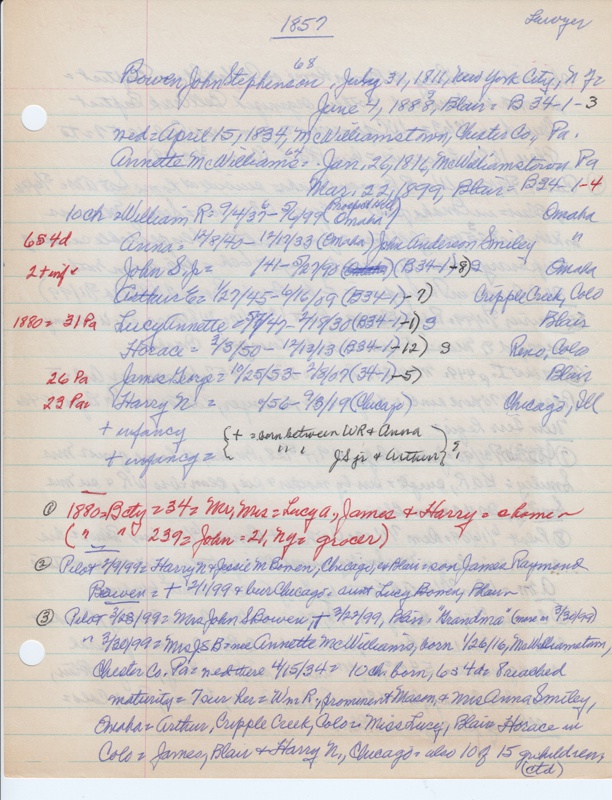 1857 Lawyer
68
Bowen, John Stephenson, July 31, 1811, New York City, N.Y. =
June 4, 1888, Blair = B 34-1-3
med = April 15, 1834, McWilliamstown, Chester Co., Pa.
Annette McWilliams = Jan, 26, 1816, McWilliamstown Pa
Mar, 22, 1899, Blair = B34-1-4
10 ch = William R = 9/4/37- 5/6/99 (Prospect Hill Omaha) Omaha
6s 4d Anna = 12/8/40- 12/17/33 (Omaha) John Anderson Smiley "
2+inf John S. Jr = /41- 5/27/90 (B34-1-8) Omaha
Arthur = 1/27/45- 6/16/09 (B34-1-7) Cripple Creek, Colo
1880 = 31 Pa Lucy Annette = /47- 2/19/30 (B34-1-1) Blair
Horace = 3/3/50- 12/13/13 (B34-1-12) Reno, Colo
26 Pa James George = 10/25/53- 2/8/07 (34-1-5) Blair
23 Pa Harry N = /56- 9/8/19 (Chicago) Chicago, Ill
+ infancy { + = born between WR & Anna
+ infancy = " " " JS jr & Arthur }
① 1880 = Bety = 34 = Mr, Mrs = Lucy A, James & Harry = @ home
( " " 239 = John = 21, Ny = grocer)
② Pilot 2/9/99 = Harry N & Jessie M Bowen, Chicago, & Blair = son James Raymond
Bowen = + 2/1/99 & bur Chicago = aunt Lucy Bowen, Blair
③ Pilot 3/23/99 = Mrs John S Bowen, + 3/22/99, Blair = "Grandma" (more in 3/30/99)
" 3/30/99 = Mrs JSB = nee Annette McWilliams, born 1/26/16, McWilliamstown,
Chester Co. Pa = med there 4/15/34 = 10 ch born, 6s 4d = 8 reached
maturity = 7 sur her = Wm R, prominent Mason, & Mrs Anna Smiley,
Omaha = Arthur, Cripple Creek, Colo = Miss Lucy, Blair = Horace in
Colo = James, Blair & Harry N., Chicago = also 10 of 15 gr children
(ctd)